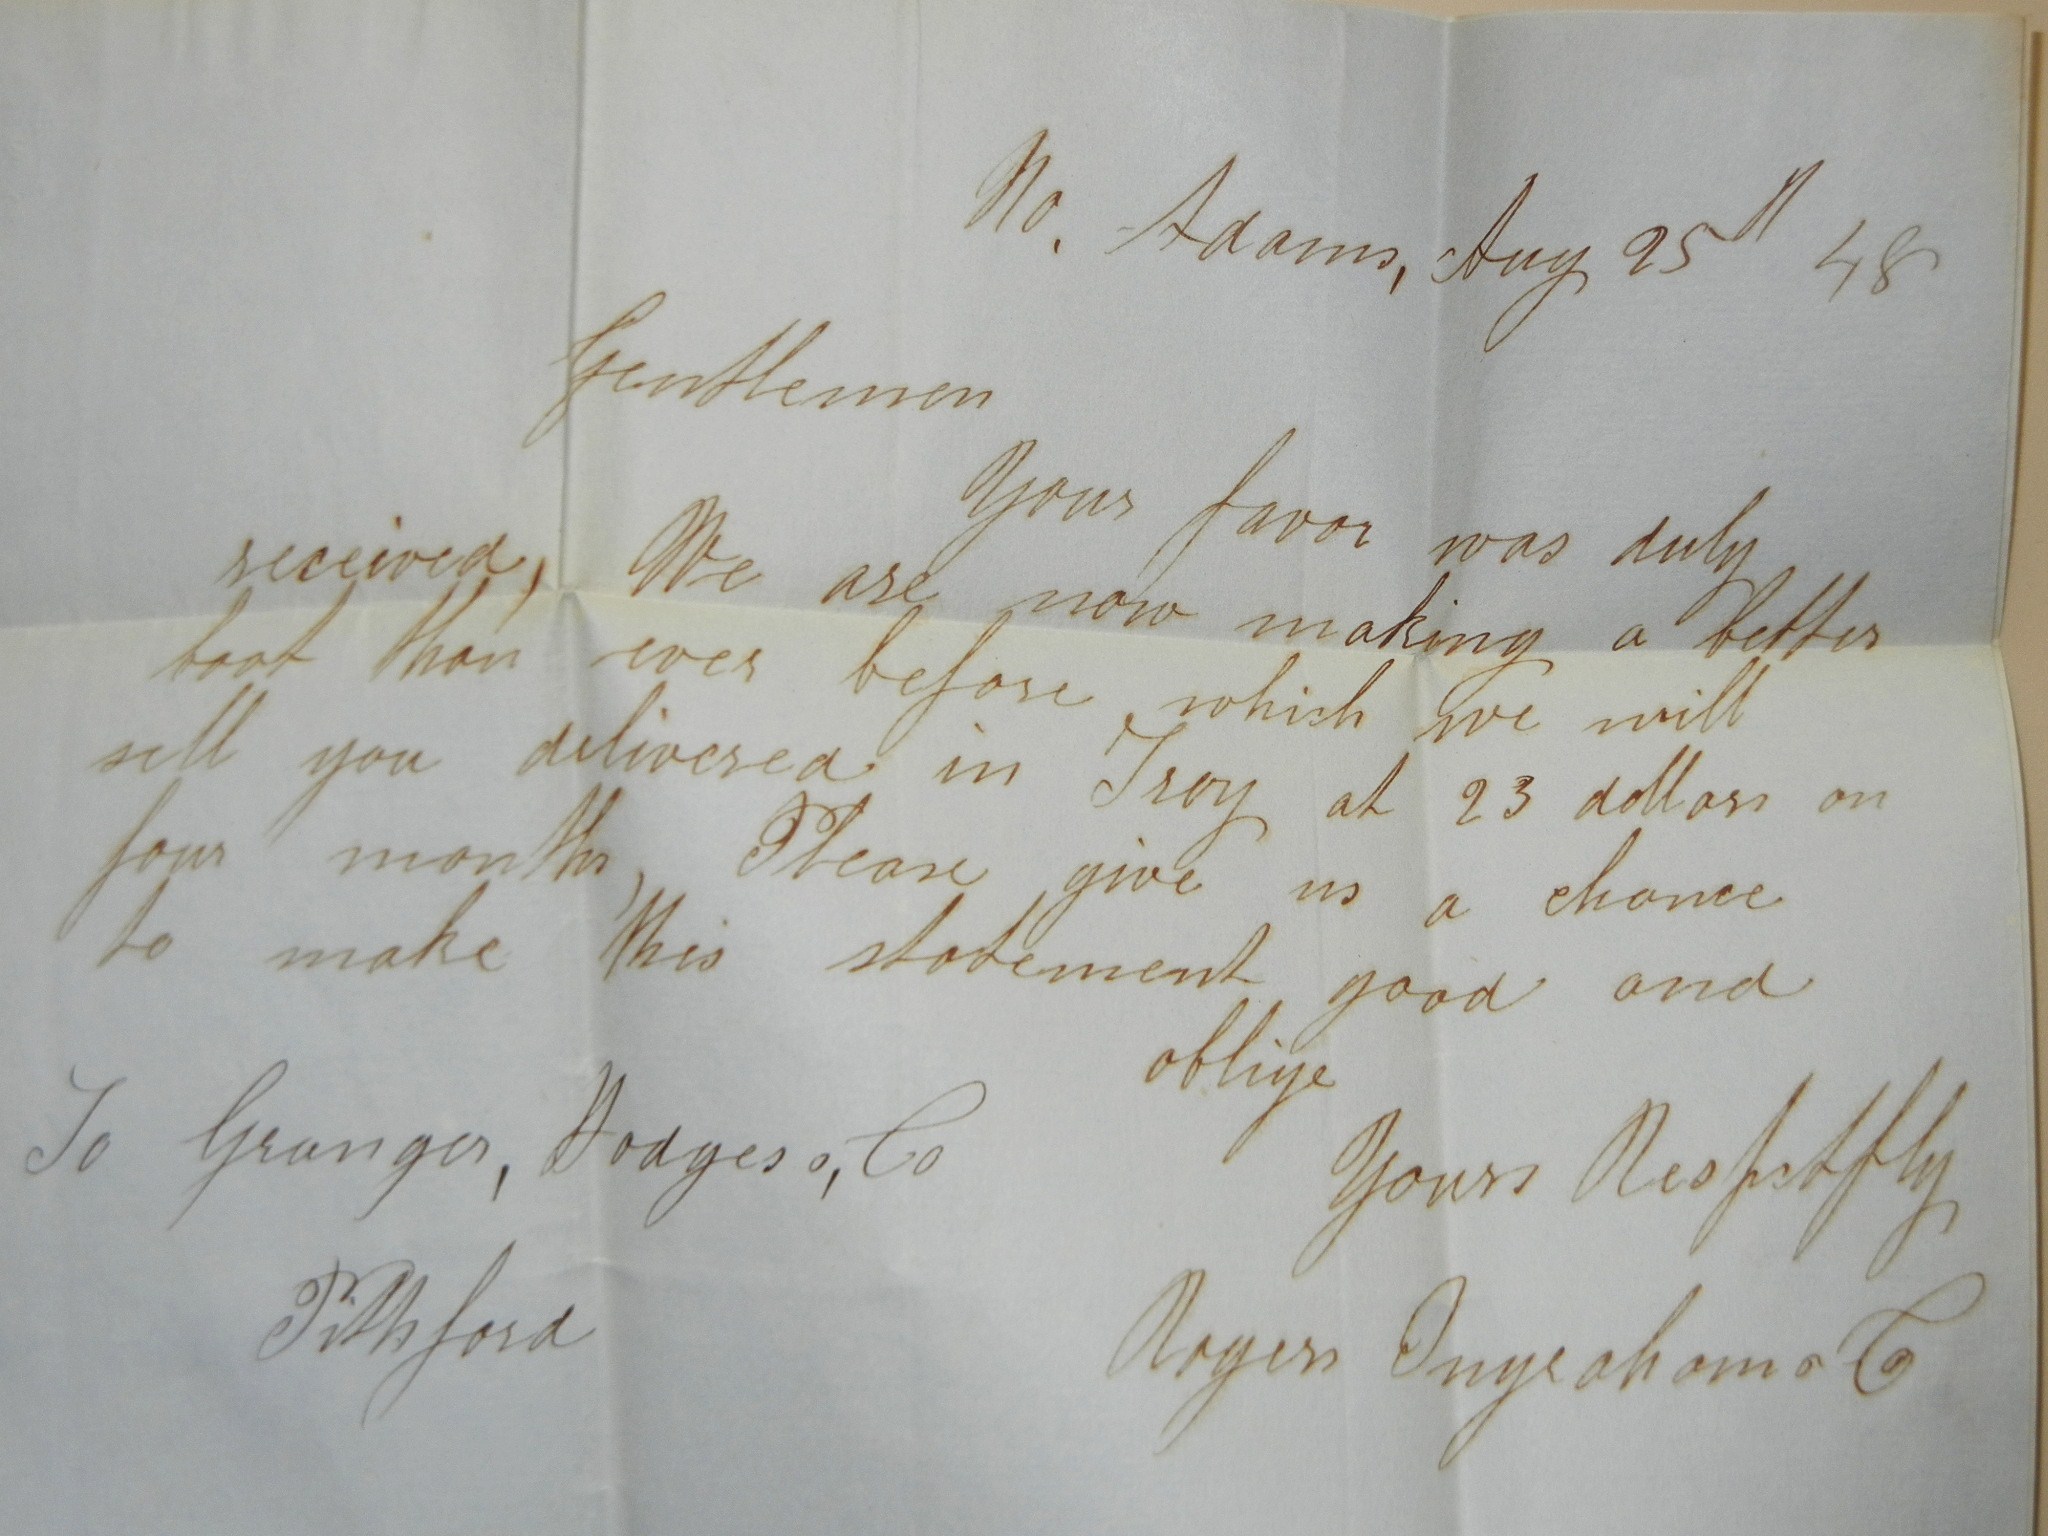 No. Adams, Aug 25th 48
Gentlemen
Your favor was duly
received, We are now making a better
boat than ever before which we will
sell you delivered in Troy at 23 dollars on
four months, Please give us a chance
to make this statement good and
oblige
To Granger, Hodges &, Co
Yours Respctfly
Pittsford
Rogers Ingraham & Co